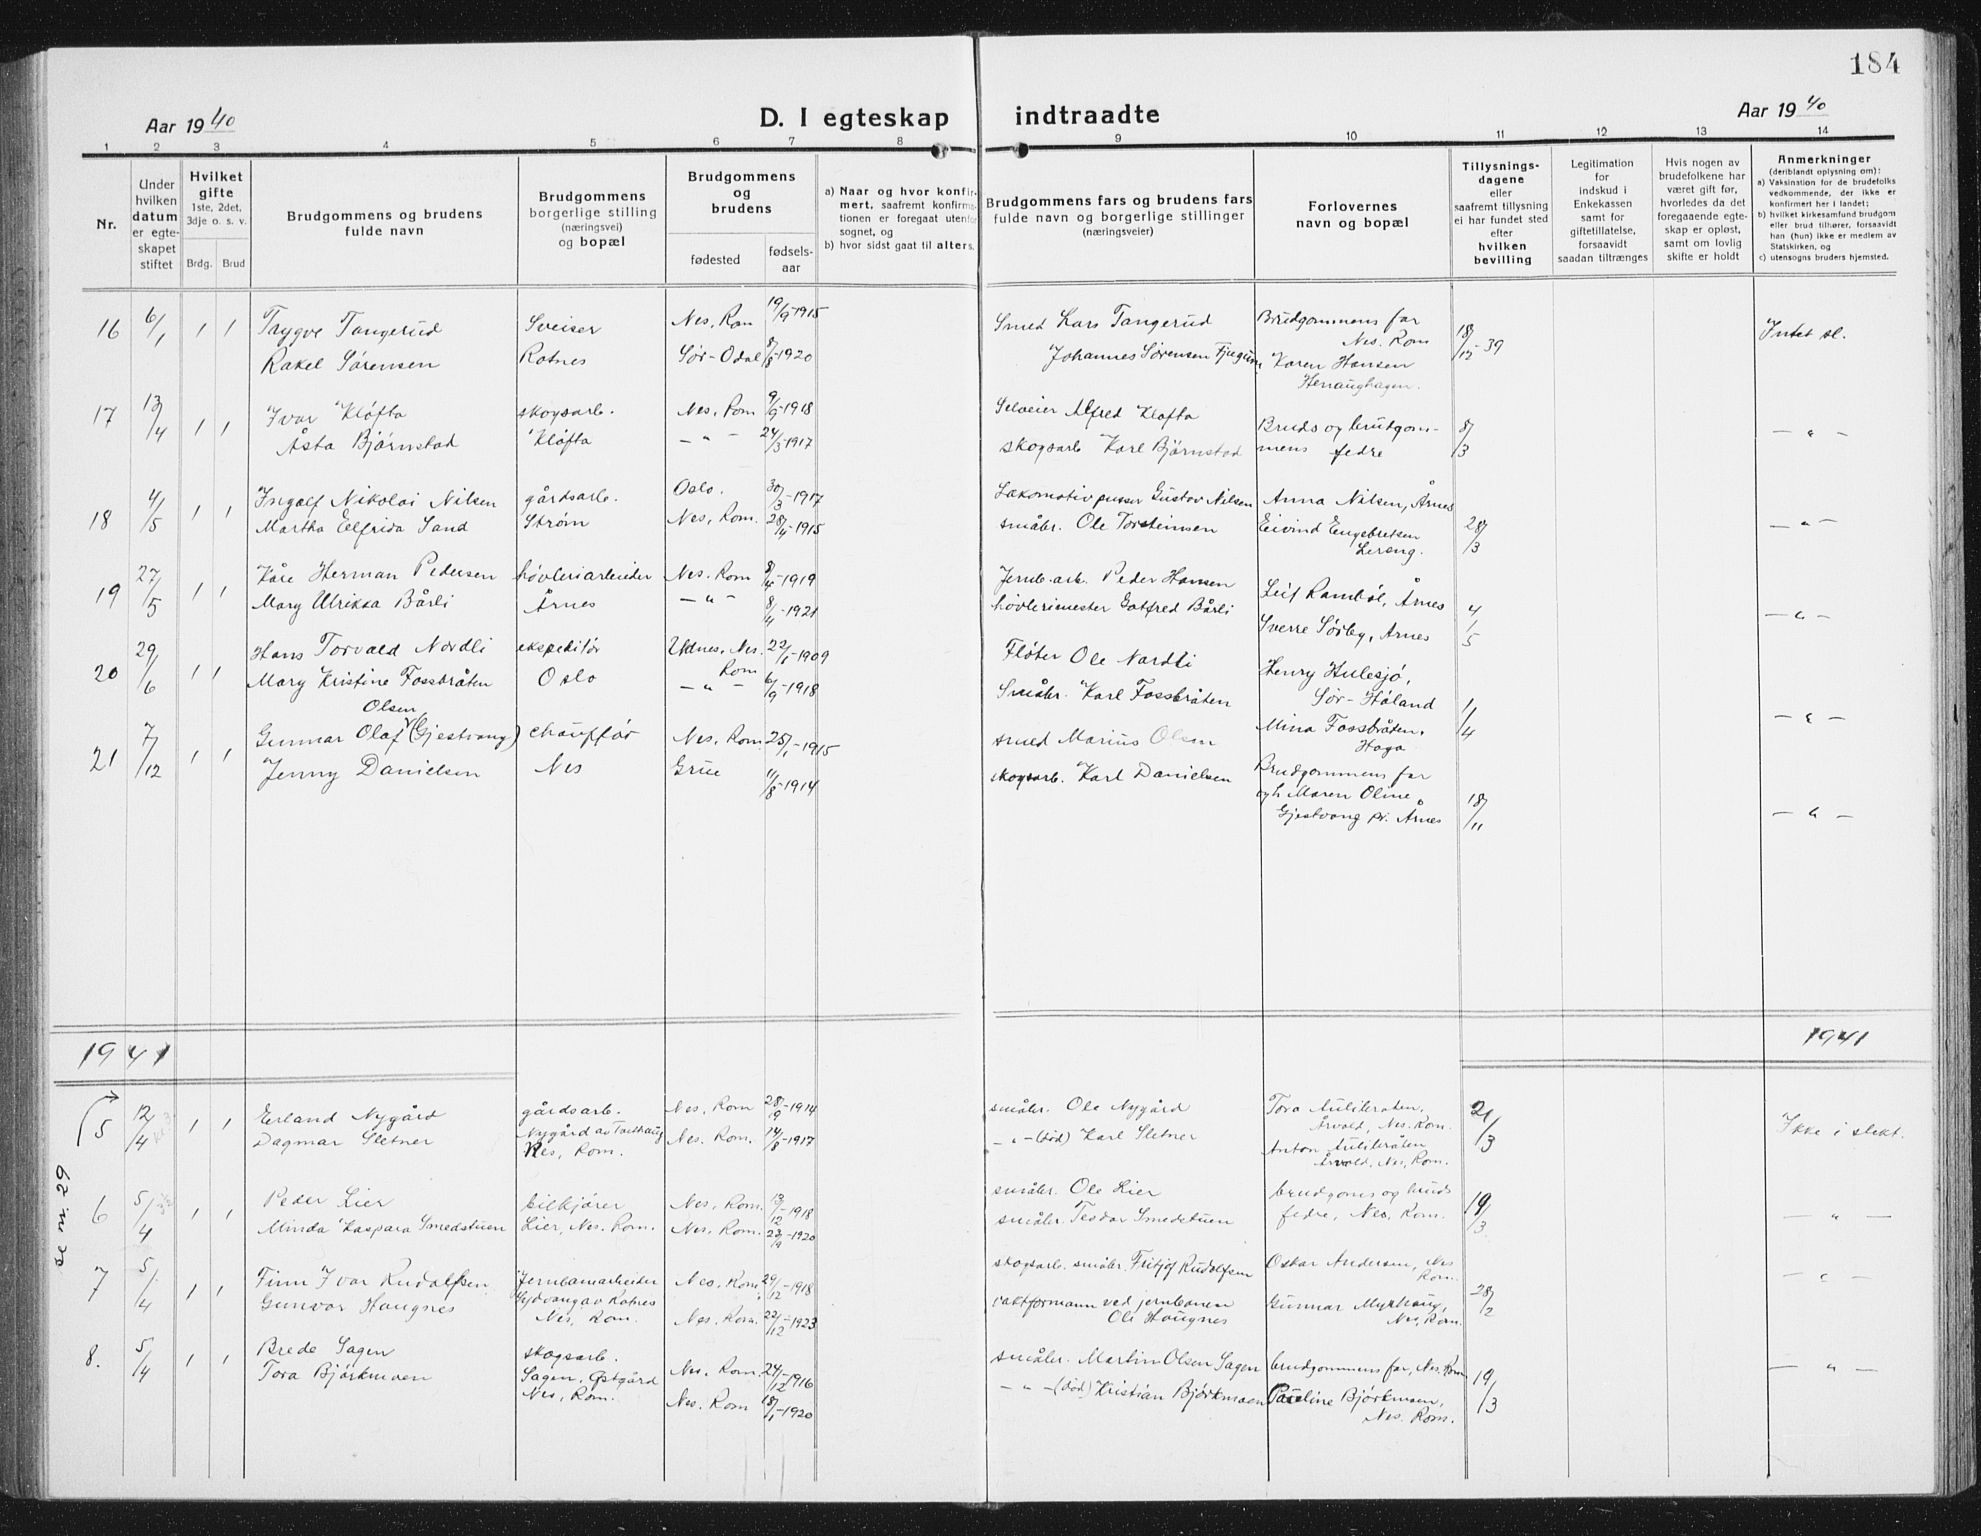 184
Aar 1940
D. I egteskap indtraadte
Aar 1940
1 2 3 4 5 6 7 8 9 10 11 12 13 14
Nr.
Under hvilken datum er egteskapet stiftet
Hvilket gifte
1ste, 2det, 3dje o. s. v.
Brdg. Brud
Brudgommens og brudens fulde navn
Brudgommens borgerlige stilling (næringsvei) og bopæl
Brudgommens og brudens
fødested
fødselsaar
a) Naar og hvor konfirmert, saafremt konfirmationen er foregaat utenfor sognet, og
b) hvor sidst gaat til alters.
Brudgommens fars og brudens fars fulde navn og borgerlige stillinger (næringsveier)
Forlovernes navn og bopæl
Tillysningsdagene eller saafremt tillysning ei har fundet sted efter hvilken bevilling
Legitimation for indskud i Enkekassen samt for giftetillatelse, forsaavidt saadan tiltrænges
Hvis nogen av brudefolkene har været gift før, hvorledes da det foregaaende egteskap er opløst, samt om lovlig skifte er holdt
Anmerkninger
(deriblandt oplysning om):
a) Vaksination for de brudefolks vedkommende, der ikke er konfirmert her i landet;
b) hvilket kirkesamfund brudgom eller brud tilhører, forsaavidt han (hun) ikke er medlem av Statskirken, og
c) utensogns bruders hjemsted.
16 6/1 1 1 Trygve Tangerud Sveiser Nes, Rom 19/9-1915 Smed Lars Tangerud Brudgommens far Nes. Rom 18/12-39 Intet sl.
Rakel Sørensen Rotnes Sør-Odal 8/8-1920 Johannes Sørensen Karen Hansen
17 13/4 1 1 Ivar Kløfta skogsarb. Nes, Rom 9/9-1918 Selveier Alfred Kløfta Bruds og brudgom- 8/3 — " —
Åsta Bjørnstad Kløfta — " — 24/3-1917 skogsarb Karl Bjørnstad mens fedre
18 4/5 1 1 Ingolf Nikolai Nilsen gårdsarb. Oslo. 30/3-1917 Lokomotivpusser Gustav Nilsen Anna Nilsen, Årnes 28/3 — " —
Martha Elfrida Sand Strøm Nes, Rom. 28/4-1915 småbr. Ole Torsteinsen Eivind Engebretsen Lereng.
19 27/5 1 1 Kåre Herman Pedersen høvleriarbeider Nes. Rom 8/4-1919 Jernb.arb. Peder Hansen Leif Rambøl, Årnes 4/5 — " —
Mary Ulrikka Bårli Årnes — " — 8/4-1921 høvlerimester Gotfred Bårli Sverre Sørby, Årnes
20 29/6 1 1 Hans Torvald Nordli ekspeditør Udnes, Nes. Rom 22/1-1909 Fløter Ole Nordli Henry Hulesjø, Sør-Høland 1/4 — " —
Mary Kristine Fossbråten Oslo — " — 6/9-1918 Småbr. Karl Fossbråten Mina Fossbråten, Haga
21 7/12 1 1 Gunnar Olaf Olsen (Gjestvang) chauffør Nes, Rom 25/1-1915 smed Marius Olsen Brudgommens far
Jenny Danielsen Nes Grue 11/8-1914 skogsarb. Karl Danielsen og h Maren Oline Gjestvang pr. Årnes 18/11 — " —
1941
1941
5 12/4 1 1 Erland Nygård gårdsarb. Nes, Rom 28/9-1914 småbr. Ole Nygård Tora Auliteråten, Årvold, Nes, Rom. 21/3 Ikke i slekt.
Dagmar Sletner Nygård av Nes, Rom. Nes, Rom. 14/8-1917 — " — (død) Karl Sletner Anton Auliteråten Årvold, Nes, Rom.
se nr. 29
6 5/4 1 1 Peder Lier bilkjører Nes, Rom. 13/12-1918 småbr. Ole Lier brudgoms og bruds 19/3 — " —
Minda Kaspara Smedstuen Lier, Nes, Rom. Nes, Rom. 23/9-1920 småbr. Teodor Smedstuen fedre, Nes, Rom.
7 5/4 1 1 Finn Ivar Rudolfsen Jernbanearbeider Nes, Rom 29/12-1918 skogsarb. småbr. Fritjof Rudolfsen Oskar Andersen, Nes Rom. 28/2 — " —
Gunvor Haugnes av Rotnes Nes, Rom. Nes, Rom. 22/12-1923 vaktformann ved jernbanen Ole Haugnes Gunnar Myrhaug, Nes, Rom.
8. 5/4 1 1 Brede Sagen skogsarb. Nes, Rom. 24/12-1916 småbr. Martin Olsen Sagen brudgommens far, Nes, Rom 19/3 — " —
Tora Bjørkmoen Sagen, Østgård Nes, Rom. Nes. Rom 18/1-1920 — " — (død) Kristian Bjørkmoen Pauline Bjørkmoen, Nes. Rom.